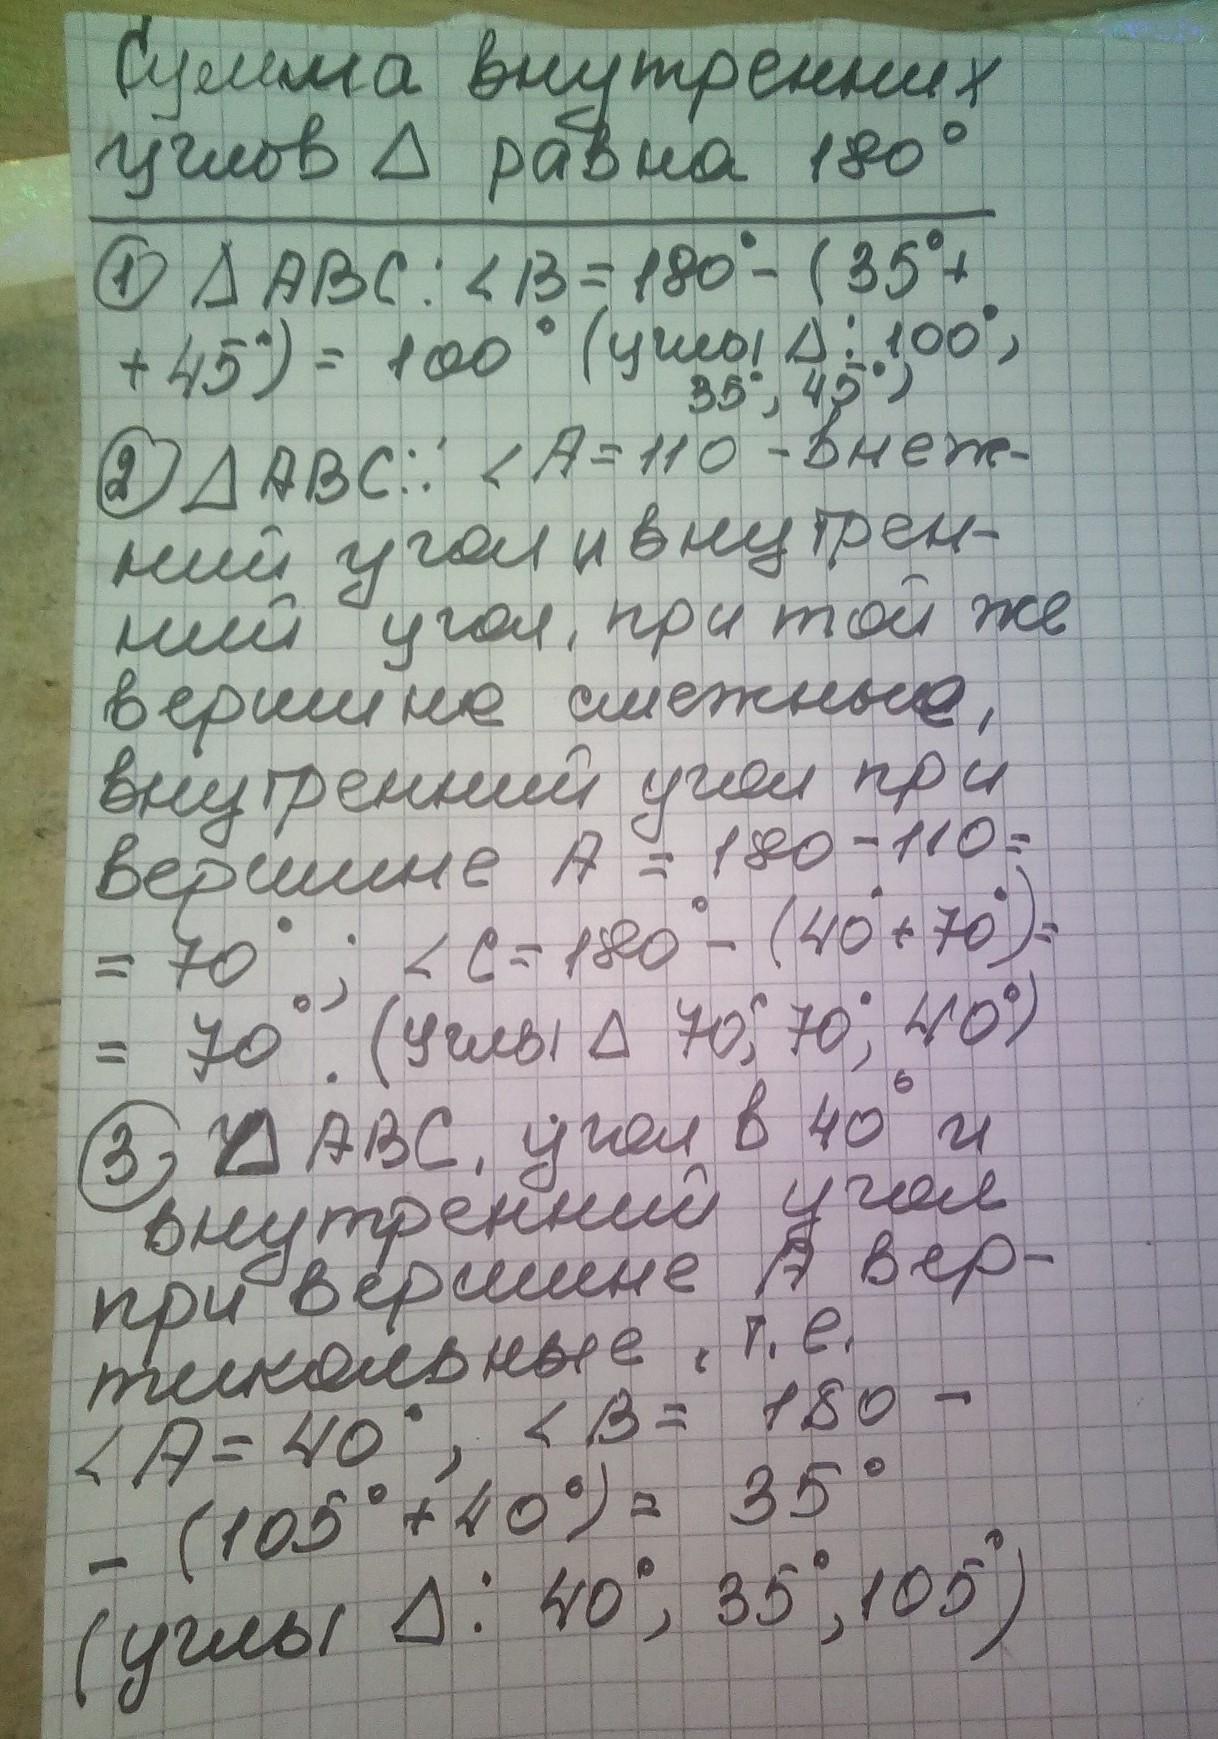 Сумма внутренних
углов Δ равна 180°
① Δ ABC: ∠B = 180° - (35° +
+ 45°) = 100° (углы Δ: 100°,
35°, 45°)
② Δ ABC: ∠A = 110 - внеж-
ний угол и внутрен-
ний угол, при той же
вершине смежные,
внутренний угол при
вершине A = 180 - 110 =
= 70°; ∠C = 180° - (40° + 70°) =
= 70°. (углы Δ 70°, 70°, 40°)
③ Δ ABC, угол в 40° и
внутренний угол
при вершине A вер-
тикальные, т.е.
∠A = 40°, ∠B = 180 -
- (105° + 40°) = 35°
(углы Δ: 40°, 35°, 105°)